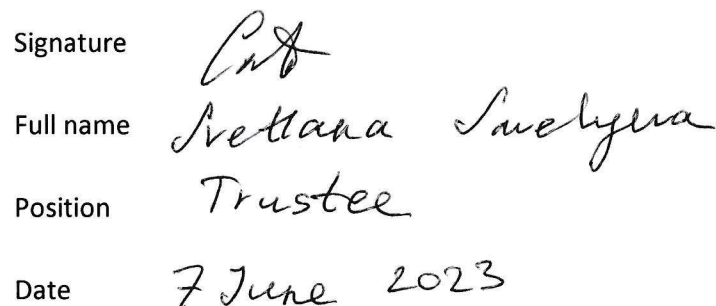 Signature
Full name Svetlana
Position Trustee
Date 7 June 2023